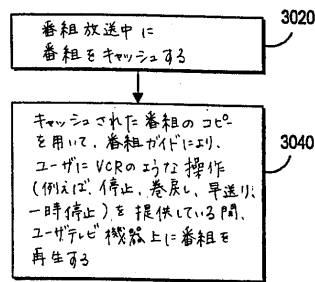 番組放送中に
番組をキャッシュする
3020
キャッシュされた番組のコピー
を用いて、番組ガイドにより、
ユーザにVCRのような操作
(例えば、停止、巻戻し、早送り、
一時停止)を提供している間、
ユーザテレビ機器上に番組を
再生する
3040